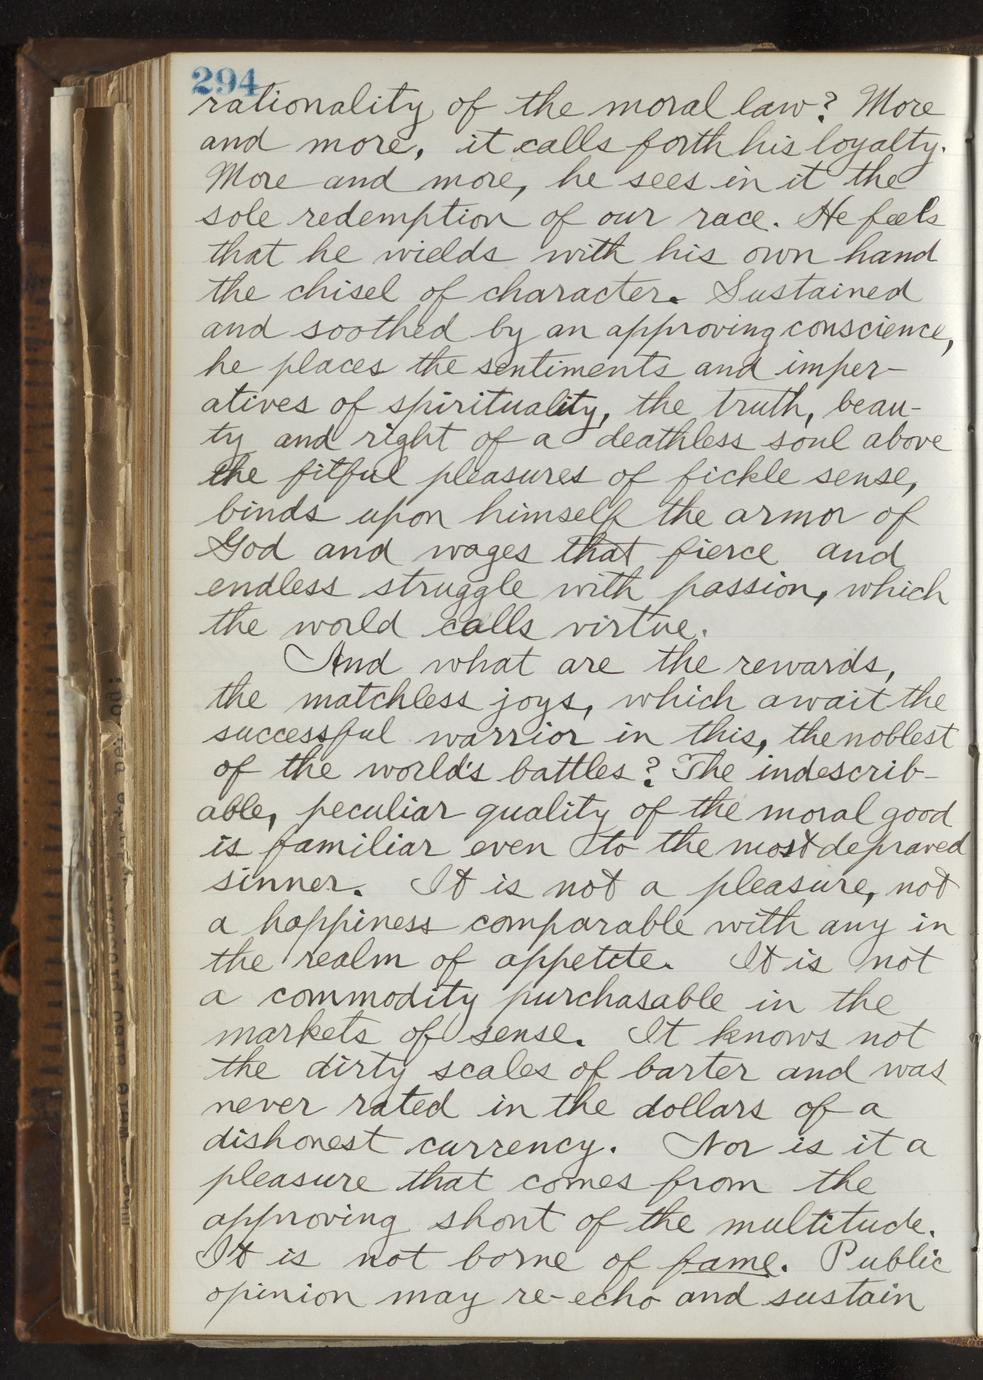 294
rationality of the moral law? More
and more, it calls forth his loyalty.
More and more, he sees in it the
sole redemption of our race. He feels
that he wields with his own hand
the chisel of character. Sustained
and soothed by an approving conscience,
he places the sentiments and imper-
atives of spirituality, the truth, beau-
ty and right of a deathless soul above
the fitful pleasures of fickle sense,
binds upon himself the armor of
God and wages that fierce and
endless struggle with passion, which
the world calls virtue.
And what are the rewards,
the matchless joys, which await the
successful warrior in this, the noblest
of the world's battles? The indescrib-
able, peculiar quality of the moral good
is familiar even to the most depraved
sinner. It is not a pleasure, not
a happiness comparable with any in
the realm of appetite. It is not
a commodity purchasable in the
markets of sense. It knows not
the dirty scales of barter and was
never rated in the dollars of a
dishonest currency. Nor is it a
pleasure that comes from the
approving shout of the multitude.
It is not borne of fame. Public
opinion may re-echo and sustain